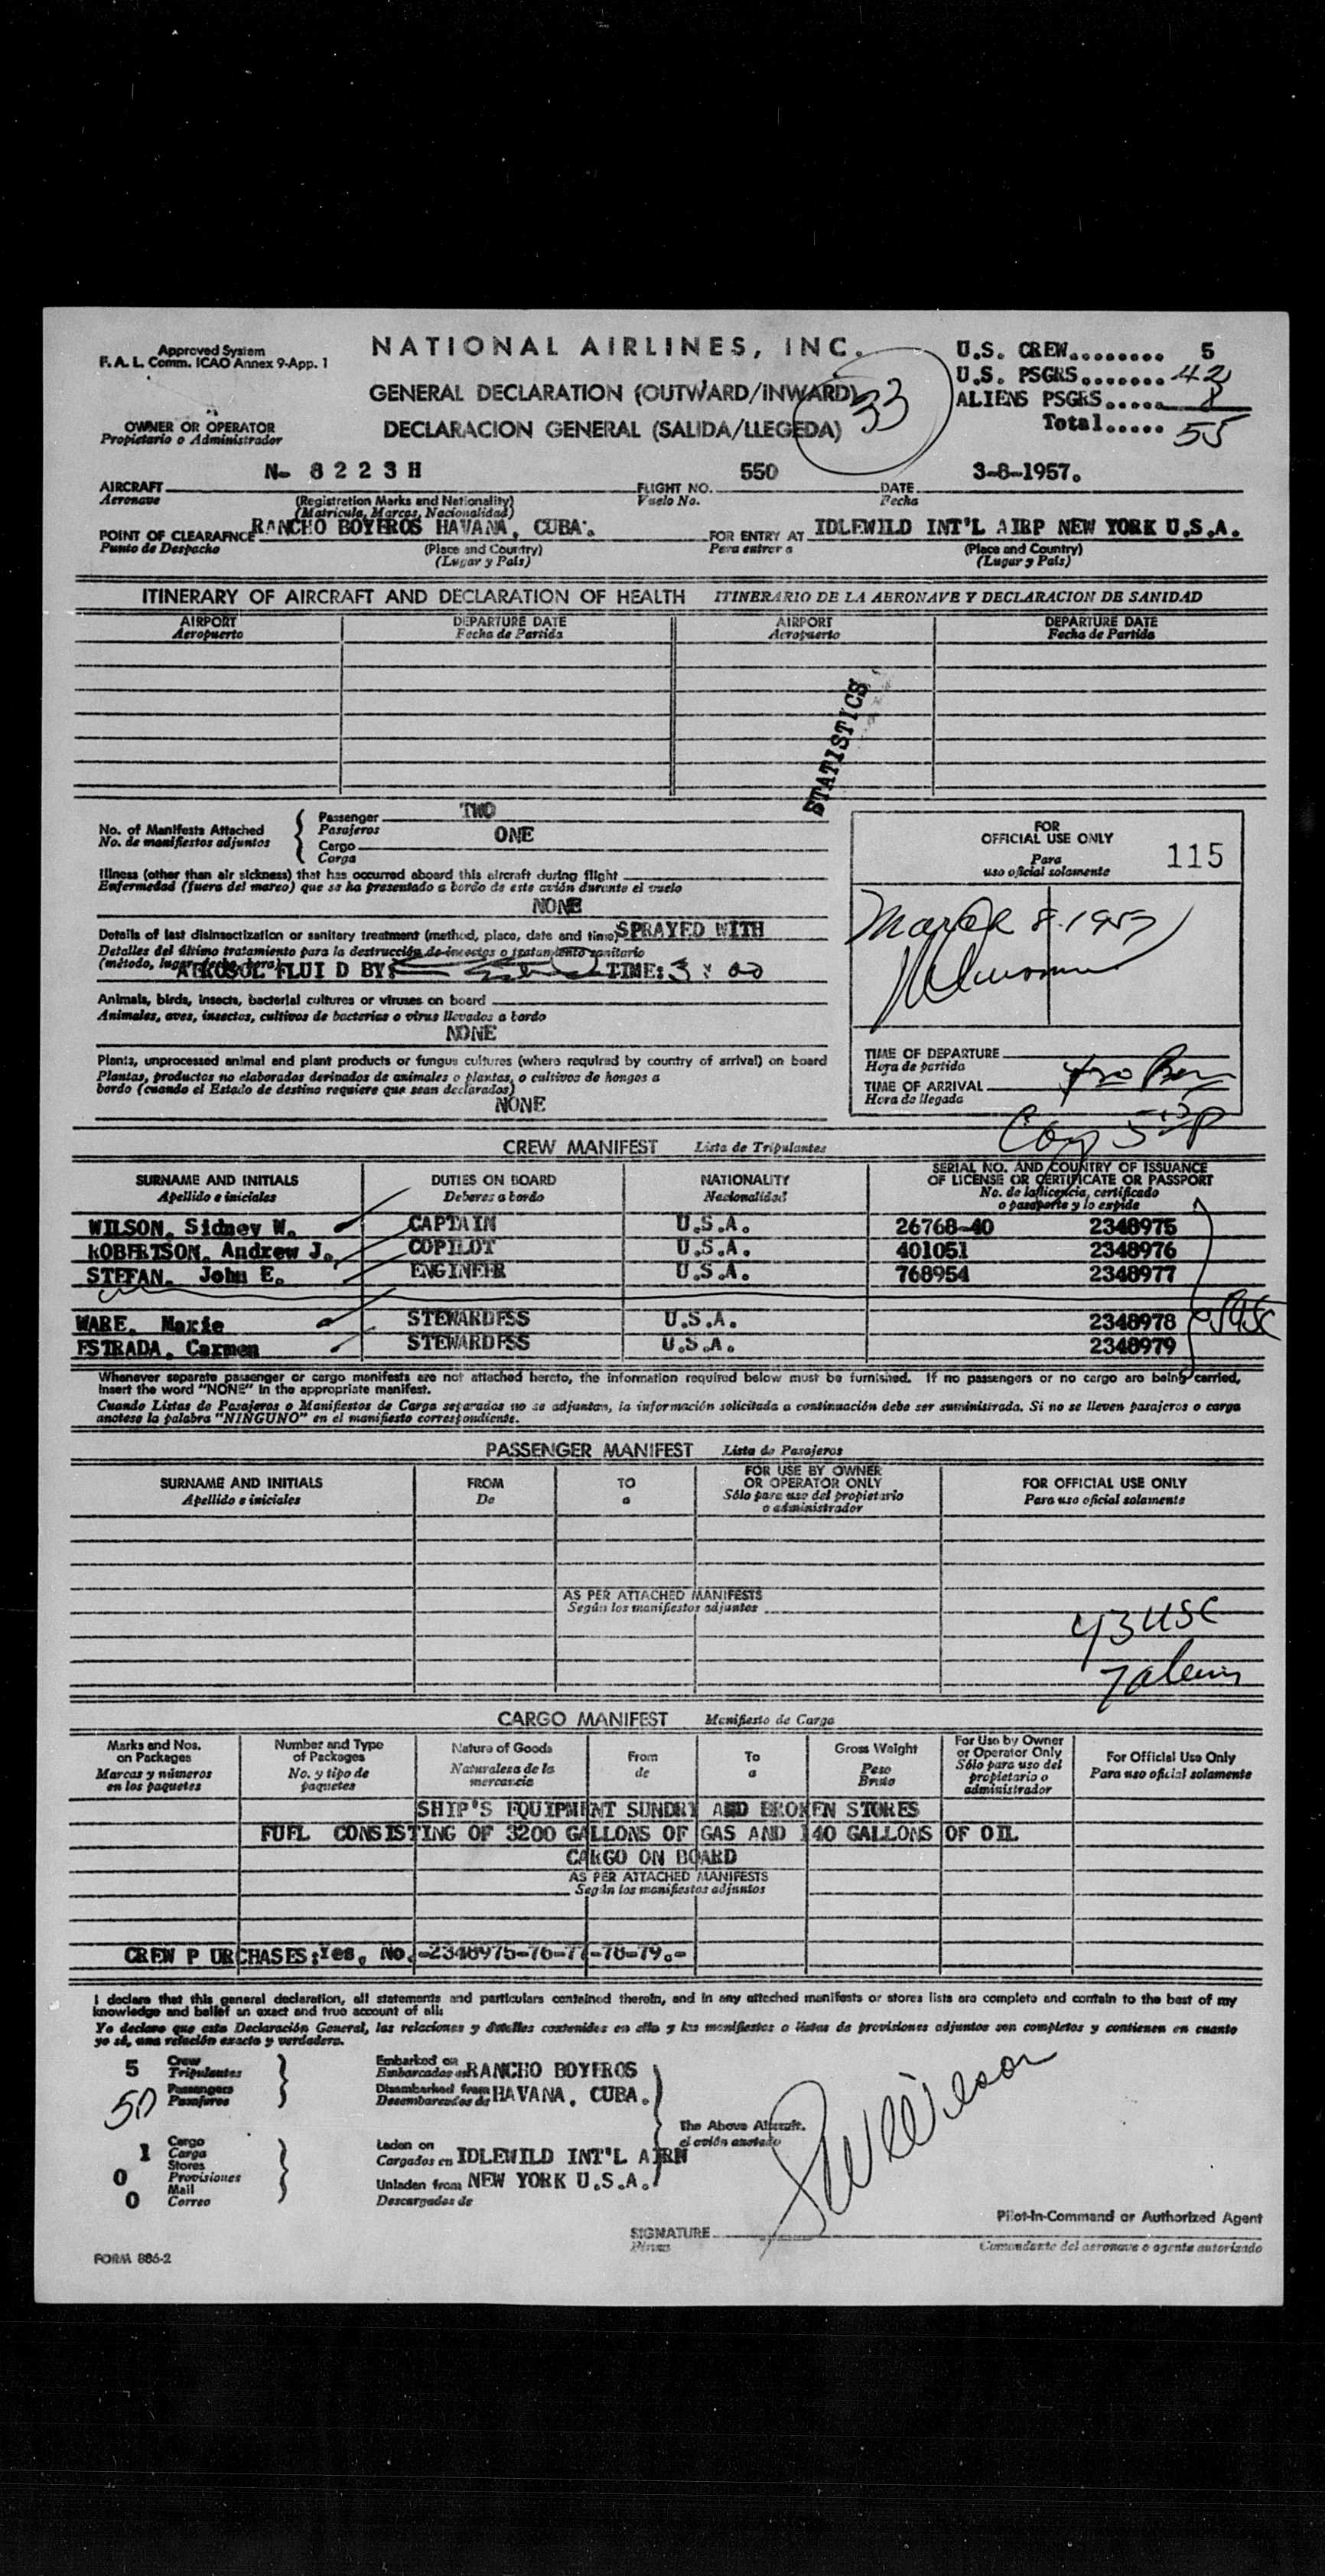 Approved System
F. A. L. Comm. ICAO Annex 9-App. 1
NATIONAL AIRLINES, INC.
GENERAL DECLARATION (OUTWARD/INWARD)
DECLARACION GENERAL (SALIDA/LLEGEDA)
33
U.S. CREW......... 5
U.S. PSGRS....... 42
ALIENS PSGRS..... 8
Total..... 55
OWNER OR OPERATOR
Propietario o Administrador
AIRCRAFT N- 8 2 2 3 H FLIGHT NO. 550 DATE 3-8-1957.
Aeronave (Registration Marks and Nationality) Vuelo No. Fecha
(Matricula, Marcas, Nacionalidad)
POINT OF CLEARAFNCE RANCHO BOYEROS HAVANA, CUBA. FOR ENTRY AT IDLEWILD INT'L AIRP NEW YORK U.S.A.
Punto de Despacho (Place and Country) Para entrar a (Place and Country)
(Lugar y Pais) (Lugar y Pais)
ITINERARY OF AIRCRAFT AND DECLARATION OF HEALTH ITINERARIO DE LA AERONAVE Y DECLARACION DE SANIDAD
AIRPORT DEPARTURE DATE AIRPORT DEPARTURE DATE
Aeropuerto Fecha de Partida Aeropuerto Fecha de Partida
STATISTICS
No. of Manifests Attached Passenger TWO
No. de manifiestos adjuntos Pasajeros
Cargo ONE
Carga
Illness (other than air sickness) that has occurred aboard this aircraft during flight
Enfermedad (fuera del mareo) que se ha presentado a bordo de este avión durante el vuelo
NONE
Details of last disinsectization or sanitary treatment (method, place, date and time) SPRAYED WITH
Detalles del último tratamiento para la destrucción de insectos o tratamiento sanitario
(método, lugar, fecha, hora)
AEROSOL FLUI D BY: TIME: 3:00
Animals, birds, insects, bacterial cultures or viruses on board
Animales, aves, insectos, cultivos de bacterias o virus llevados a bordo
NONE
Plants, unprocessed animal and plant products or fungus cultures (where required by country of arrival) on board
Plantas, productos no elaborados derivados de animales o plantas, o cultivos de hongos a
bordo (cuando el Estado de destino requiere que sean declarados)
NONE
FOR
OFFICIAL USE ONLY
Para
uso oficial solamente
115
March 8. 1957
TIME OF DEPARTURE
Hora de partida
TIME OF ARRIVAL
Hora de llegada
CREW MANIFEST Lista de Tripulantes
SURNAME AND INITIALS DUTIES ON BOARD NATIONALITY SERIAL NO. AND COUNTRY OF ISSUANCE
Apellido e iniciales Deberes a bordo Nacionalidad OF LICENSE OR CERTIFICATE OR PASSPORT
No. de la licencia, certificado
o pasaporte y lo expide
WILSON, Sidney W. CAPTAIN U.S.A. 26768-40 2348975
ROBERTSON, Andrew J. COPILOT U.S.A. 401051 2348976
STEFAN, John E. ENGINEER U.S.A. 768954 2348977
WARE, Marie STEWARDESS U.S.A. 2348978
ESTRADA, Carmen STEWARDESS U.S.A. 2348979
Whenever separate passenger or cargo manifests are not attached hereto, the information required below must be furnished. If no passengers or no cargo are being carried,
insert the word "NONE" in the appropriate manifest.
Cuando Listas de Pasajeros o Manifiestos de Carga separados no se adjuntan, la información solicitada a continuación debe ser suministrada. Si no se lleven pasajeros o carga
anotese la palabra "NINGUNO" en el manifiesto correspondiente.
PASSENGER MANIFEST Lista de Pasajeros
SURNAME AND INITIALS FROM TO FOR USE BY OWNER FOR OFFICIAL USE ONLY
Apellido e iniciales De a OR OPERATOR ONLY Para uso oficial solamente
Sólo para uso del propietario
o administrador
AS PER ATTACHED MANIFESTS
Según los manifiestos adjuntos
43 USC
7 aliens
CARGO MANIFEST Manifiesto de Carga
Marks and Nos. Number and Type Nature of Goods From To Gross Weight For Use by Owner For Official Use Only
on Packages of Packages Naturaleza de la de a Peso or Operator Only Para uso oficial solamente
Marcas y números No. y tipo de mercancia Bruto Sólo para uso del
en los paquetes paquetes propietario o
administrador
SHIP'S EQUIPMENT SUNDRY AND BROKEN STORES
FUEL CONSISTING OF 3200 GALLONS OF GAS AND 140 GALLONS OF OIL
CARGO ON BOARD
AS PER ATTACHED MANIFESTS
Según los manifiestos adjuntos
CREW P URCHASES: Yes, No.-2348975-76-77-78-79.-
I declare that this general declaration, all statements and particulars contained therein, and in any attached manifests or stores lists are complete and contain to the best of my
knowledge and belief an exact and true account of all:
Yo declaro que esta Declaración General, las relaciones y detalles contenidos en ella y las manifiestos o listas de provisiones adjuntos son completos y contienen en cuanto
yo sé, una relación exacta y verdadera.
5 Crew Embarked on RANCHO BOYEROS
Tripulantes Embarcados en
50 Passengers Disembarked from HAVANA, CUBA.
Pasajeros Desembarcados de
The Above Aircraft.
el avión anotado
Cargo
1 Carga Laden on IDLEWILD INT'L AIRN
Stores Cargados en
0 Provisiones Unladen from NEW YORK U.S.A.
Mail Descargados de
0 Correo
SWWilson
Pilot-in-Command or Authorized Agent
SIGNATURE
Firma Comandante del aeronave o agente autorizado
FORM 886-2